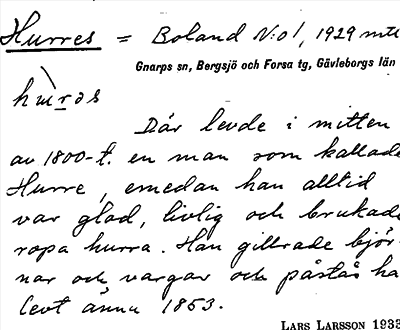 Hurres = Boland N:o 1, 1929 mtl
Gnarps sn, Bergsjö och Forsa tg, Gävleborgs län
húrəs
Där levde i mitten
av 1800-t. en man som kallade
Hurre, emedan han alltid
var glad, livlig och brukade
ropa hurra. Han gillrade björ-
nar och vargar och påstås ha
levt ännu 1853.
LARS LARSSON 1933